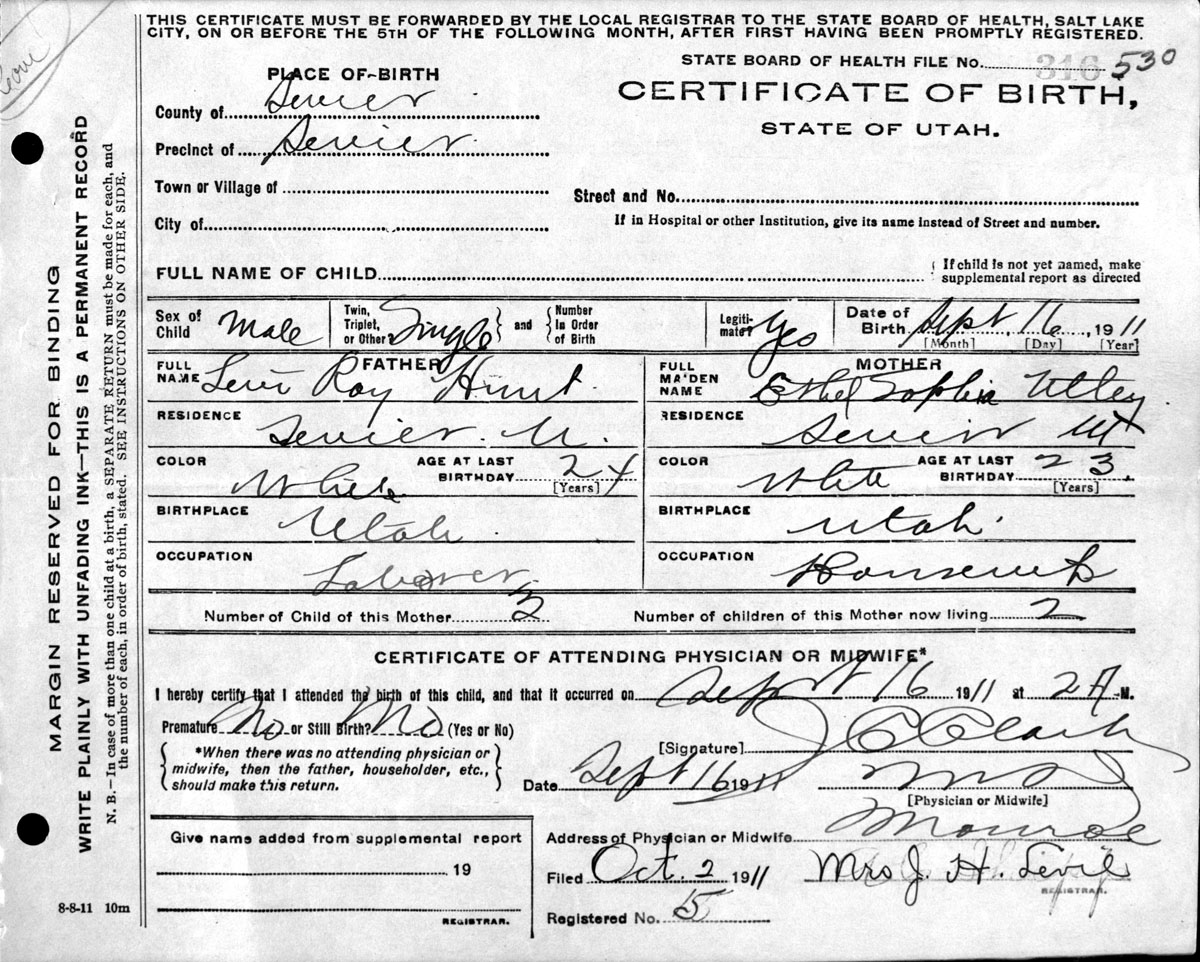 THIS CERTIFICATE MUST BE FORWARDED BY THE LOCAL REGISTRAR TO THE STATE BOARD OF HEALTH, SALT LAKE
CITY, ON OR BEFORE THE 5TH OF THE FOLLOWING MONTH, AFTER FIRST HAVING BEEN PROMPTLY REGISTERED.
STATE BOARD OF HEALTH FILE No. 316 530
PLACE OF BIRTH
CERTIFICATE OF BIRTH,
STATE OF UTAH.
County of Sevier
Precinct of Sevier
Town or Village of
Street and No.
City of
If in Hospital or other Institution, give its name instead of Street and number.
FULL NAME OF CHILD
If child is not yet named, make
supplemental report as directed
Sex of Child Male Twin, Triplet, or Other? Single and Number In Order of Birth Legiti-mate? Yes Date of Birth Sept 16, 1911
[Month] [Day] [Year]
FATHER MOTHER
FULL NAME Levi Roy Hunt FULL MAIDEN NAME Ethel Sophia Utley
RESIDENCE Sevier U. RESIDENCE Sevier Ut
COLOR White AGE AT LAST BIRTHDAY 24 [Years] COLOR White AGE AT LAST BIRTHDAY 23 [Years]
BIRTHPLACE Utah BIRTHPLACE Utah
OCCUPATION Laborer OCCUPATION
Number of Child of this Mother Number of children of this Mother now living 2
CERTIFICATE OF ATTENDING PHYSICIAN OR MIDWIFE*
I hereby certify that I attended the birth of this child, and that it occurred on Sept 16 1911 at 2 A M.
Premature No or Still Birth? No (Yes or No)
[Signature] J C Clark
*When there was no attending physician or
midwife, then the father, householder, etc.,
should make this return.
Date Sept 16 1911 MD
[Physician or Midwife]
Give name added from supplemental report
19
REGISTRAR.
Address of Physician or Midwife Monroe
Filed Oct. 2 1911 Mrs J. H.
REGISTRAR.
Registered No. 5
8-8-11 10m
MARGIN RESERVED FOR BINDING
WRITE PLAINLY WITH UNFADING INK—THIS IS A PERMANENT RECORD
N. B.—In case of more than one child at a birth, a SEPARATE RETURN must be made for each, and
the number of each, in order of birth, stated. SEE INSTRUCTIONS ON OTHER SIDE.